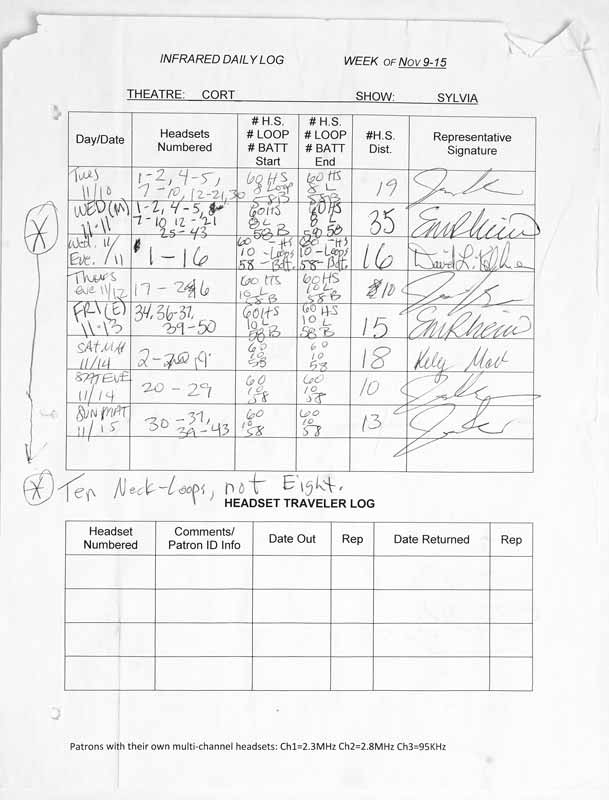 INFRARED DAILY LOG WEEK OF NOV 9-15
THEATRE: CORT SHOW: SYLVIA
Day/Date Headsets Numbered # H.S. # LOOP # BATT Start # H.S. # LOOP # BATT End #H.S. Dist. Representative Signature
Tues 11/10 1-2, 4-5, 7-10, 12-21, 30 60 HS 8 Loop 58 B 60 HS 8 L 58 B 19
WED (M) 11-11 1-2, 4-5, 7-10 12-21 25-43 60 HS 8 L 58 B 60 HS 8 L 58 35 EmRheim
Wed. 11/11 Eve. 1-16 60 -HS 10 -Loops 58-Batt. 60 -HS 10 -Loops 58-Batt. 16 David L.
Thurs eve 11/12 17-26 60 HS 10 L 58 B 60 HS 10 L 58 B 10
FRI (E) 11-13 34, 36-37, 39-50 60 HS 10 L 58 B 60 HS 10 L 58 B 15 EmRheim
SAT MAT 11/14 2-19 60 10 58 60 10 58 18 Kely
SAT EVE 11/14 20-29 60 10 58 60 10 58 10
SUN MAT 11/15 30-37, 39-43 60 10 58 60 10 58 13
* Ten Neck-Loops, not Eight.
HEADSET TRAVELER LOG
Headset Numbered Comments/ Patron ID Info Date Out Rep Date Returned Rep
Patrons with their own multi-channel headsets: Ch1=2.3MHz Ch2=2.8MHz Ch3=95KHz